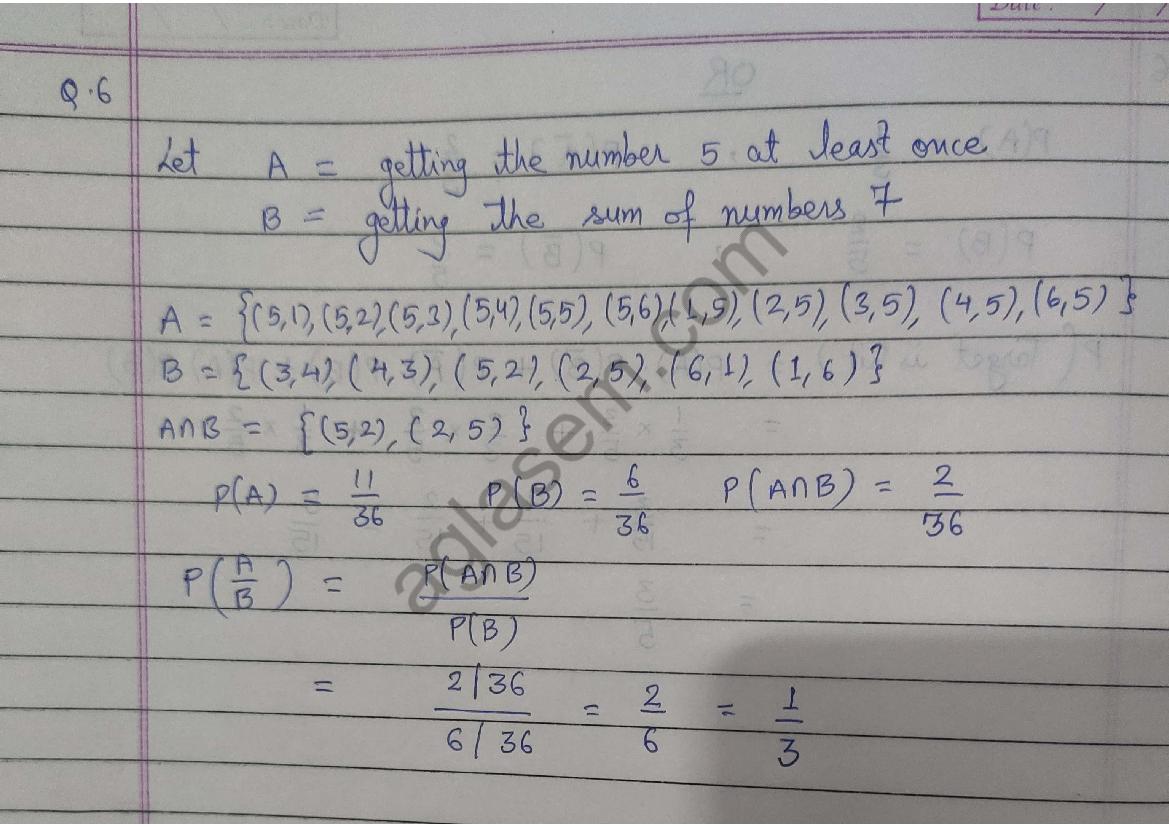 Date: / /
Q.6
Let A = getting the number 5 at least once
B = getting the sum of numbers 7
A = {(5,1), (5,2), (5,3), (5,4), (5,5), (5,6), (1,5), (2,5), (3,5), (4,5), (6,5)}
B = {(3,4), (4,3), (5,2), (2,5), (6,1), (1,6)}
A∩B = {(5,2), (2,5)}
P(A) = 11/36 P(B) = 6/36 P(A∩B) = 2/36
P(A/B) = P(A∩B)/P(B)
= 2/36 / 6/36 = 2/6 = 1/3
aglasem.com